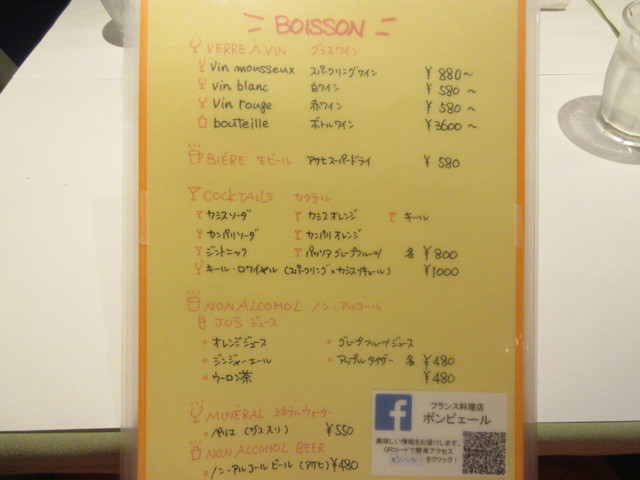 BOISSON
VERRE À VIN グラスワイン
vin mousseux スパークリングワイン ¥ 880〜
vin blanc 白ワイン ¥ 580〜
vin rouge 赤ワイン ¥ 580〜
bouteille ボトルワイン ¥3600〜
BIÉRE 生ビール アサヒスーパードライ ¥ 580
COCKTAILS カクテル
カシスソーダ カシスオレンジ キール
カンパリソーダ カンパリオレンジ
ジントニック パッソアグレープフルーツ 各 ¥800
キール・ロワイヤル (スパークリング×カシスリキュール) ¥1000
NON ALCOHOL ノン・アルコール
JUS ジュース
オレンジジュース グレープフルーツジュース
ジンジャーエール アップルタイザー 各 ¥480
ウーロン茶 ¥480
MINÉRAL ミネラルウォーター
ペリエ (ガス入り) ¥550
NON ALCOHOL BEER
ノン・アルコールビール (アサヒ) ¥480
f
フランス料理店
ボンピエール
美味しい情報をお届けします。
QRコードで簡単アクセス
いいね! をクリック!